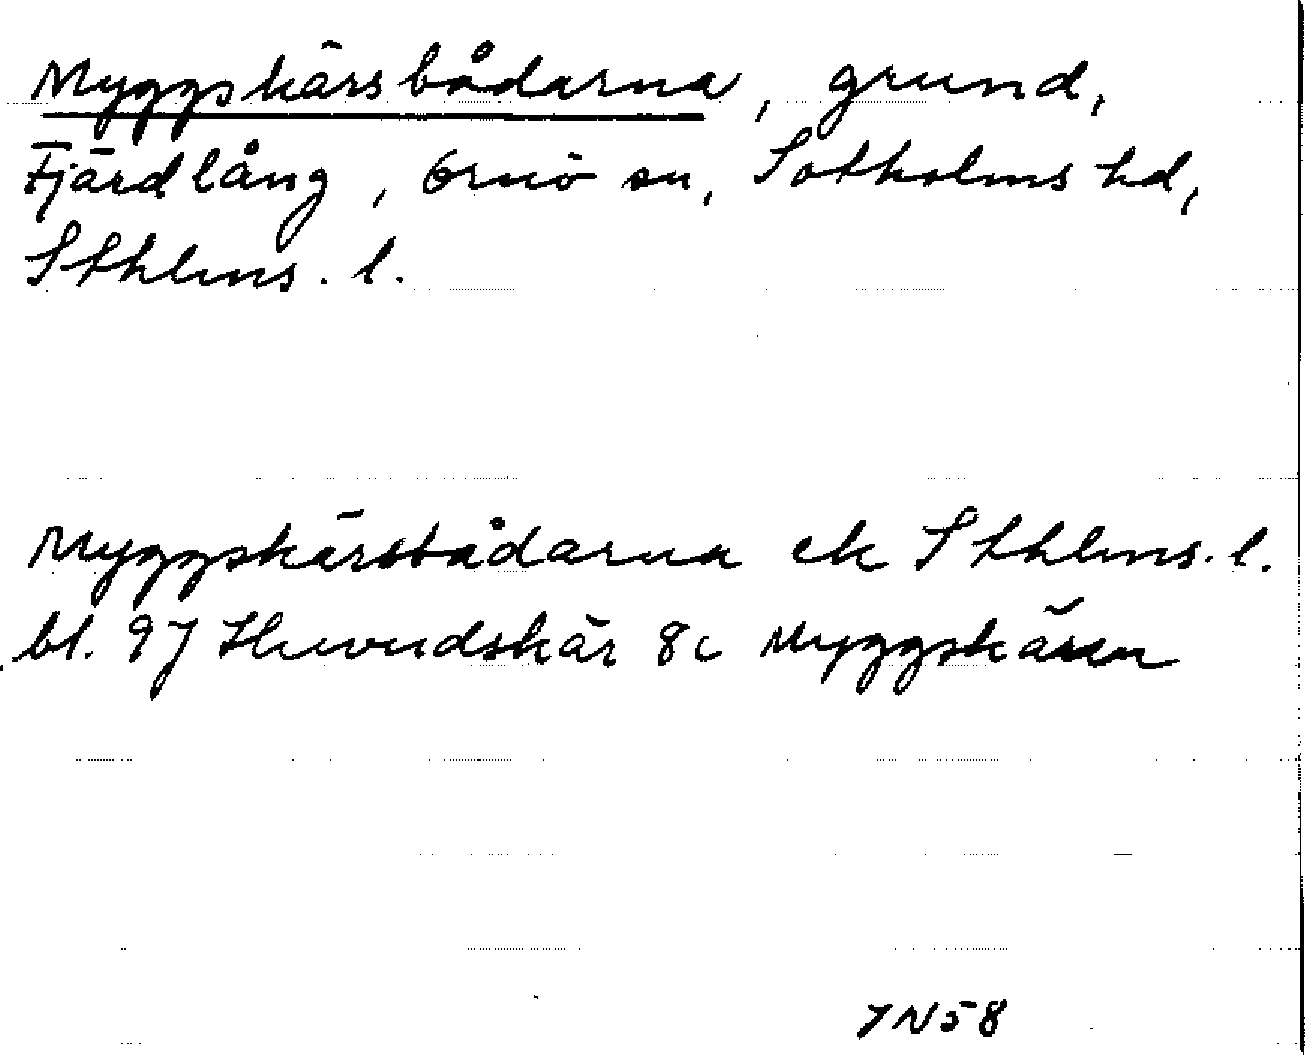 Myggskärsbådarna, grund,
Fjärdlång, Ornö sn, Sotholms hd,
Sthlms. l.
Myggskärsbådarna ek Sthlms. l.
bl. 97 Huvudskär 8c Myggskären
YN58